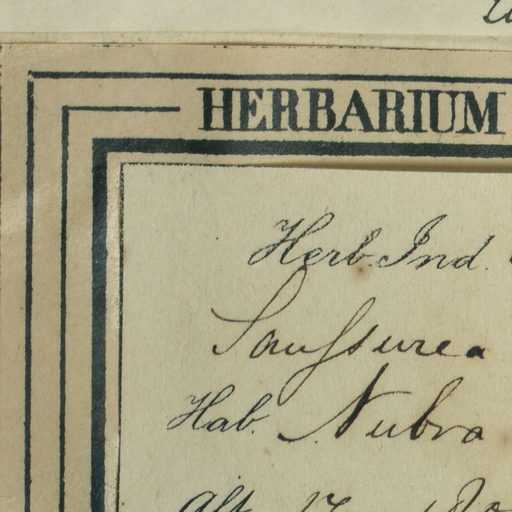 HERBARIUM
Herb. Ind.
Saussurea
Hab. Nubra
Alt. 17